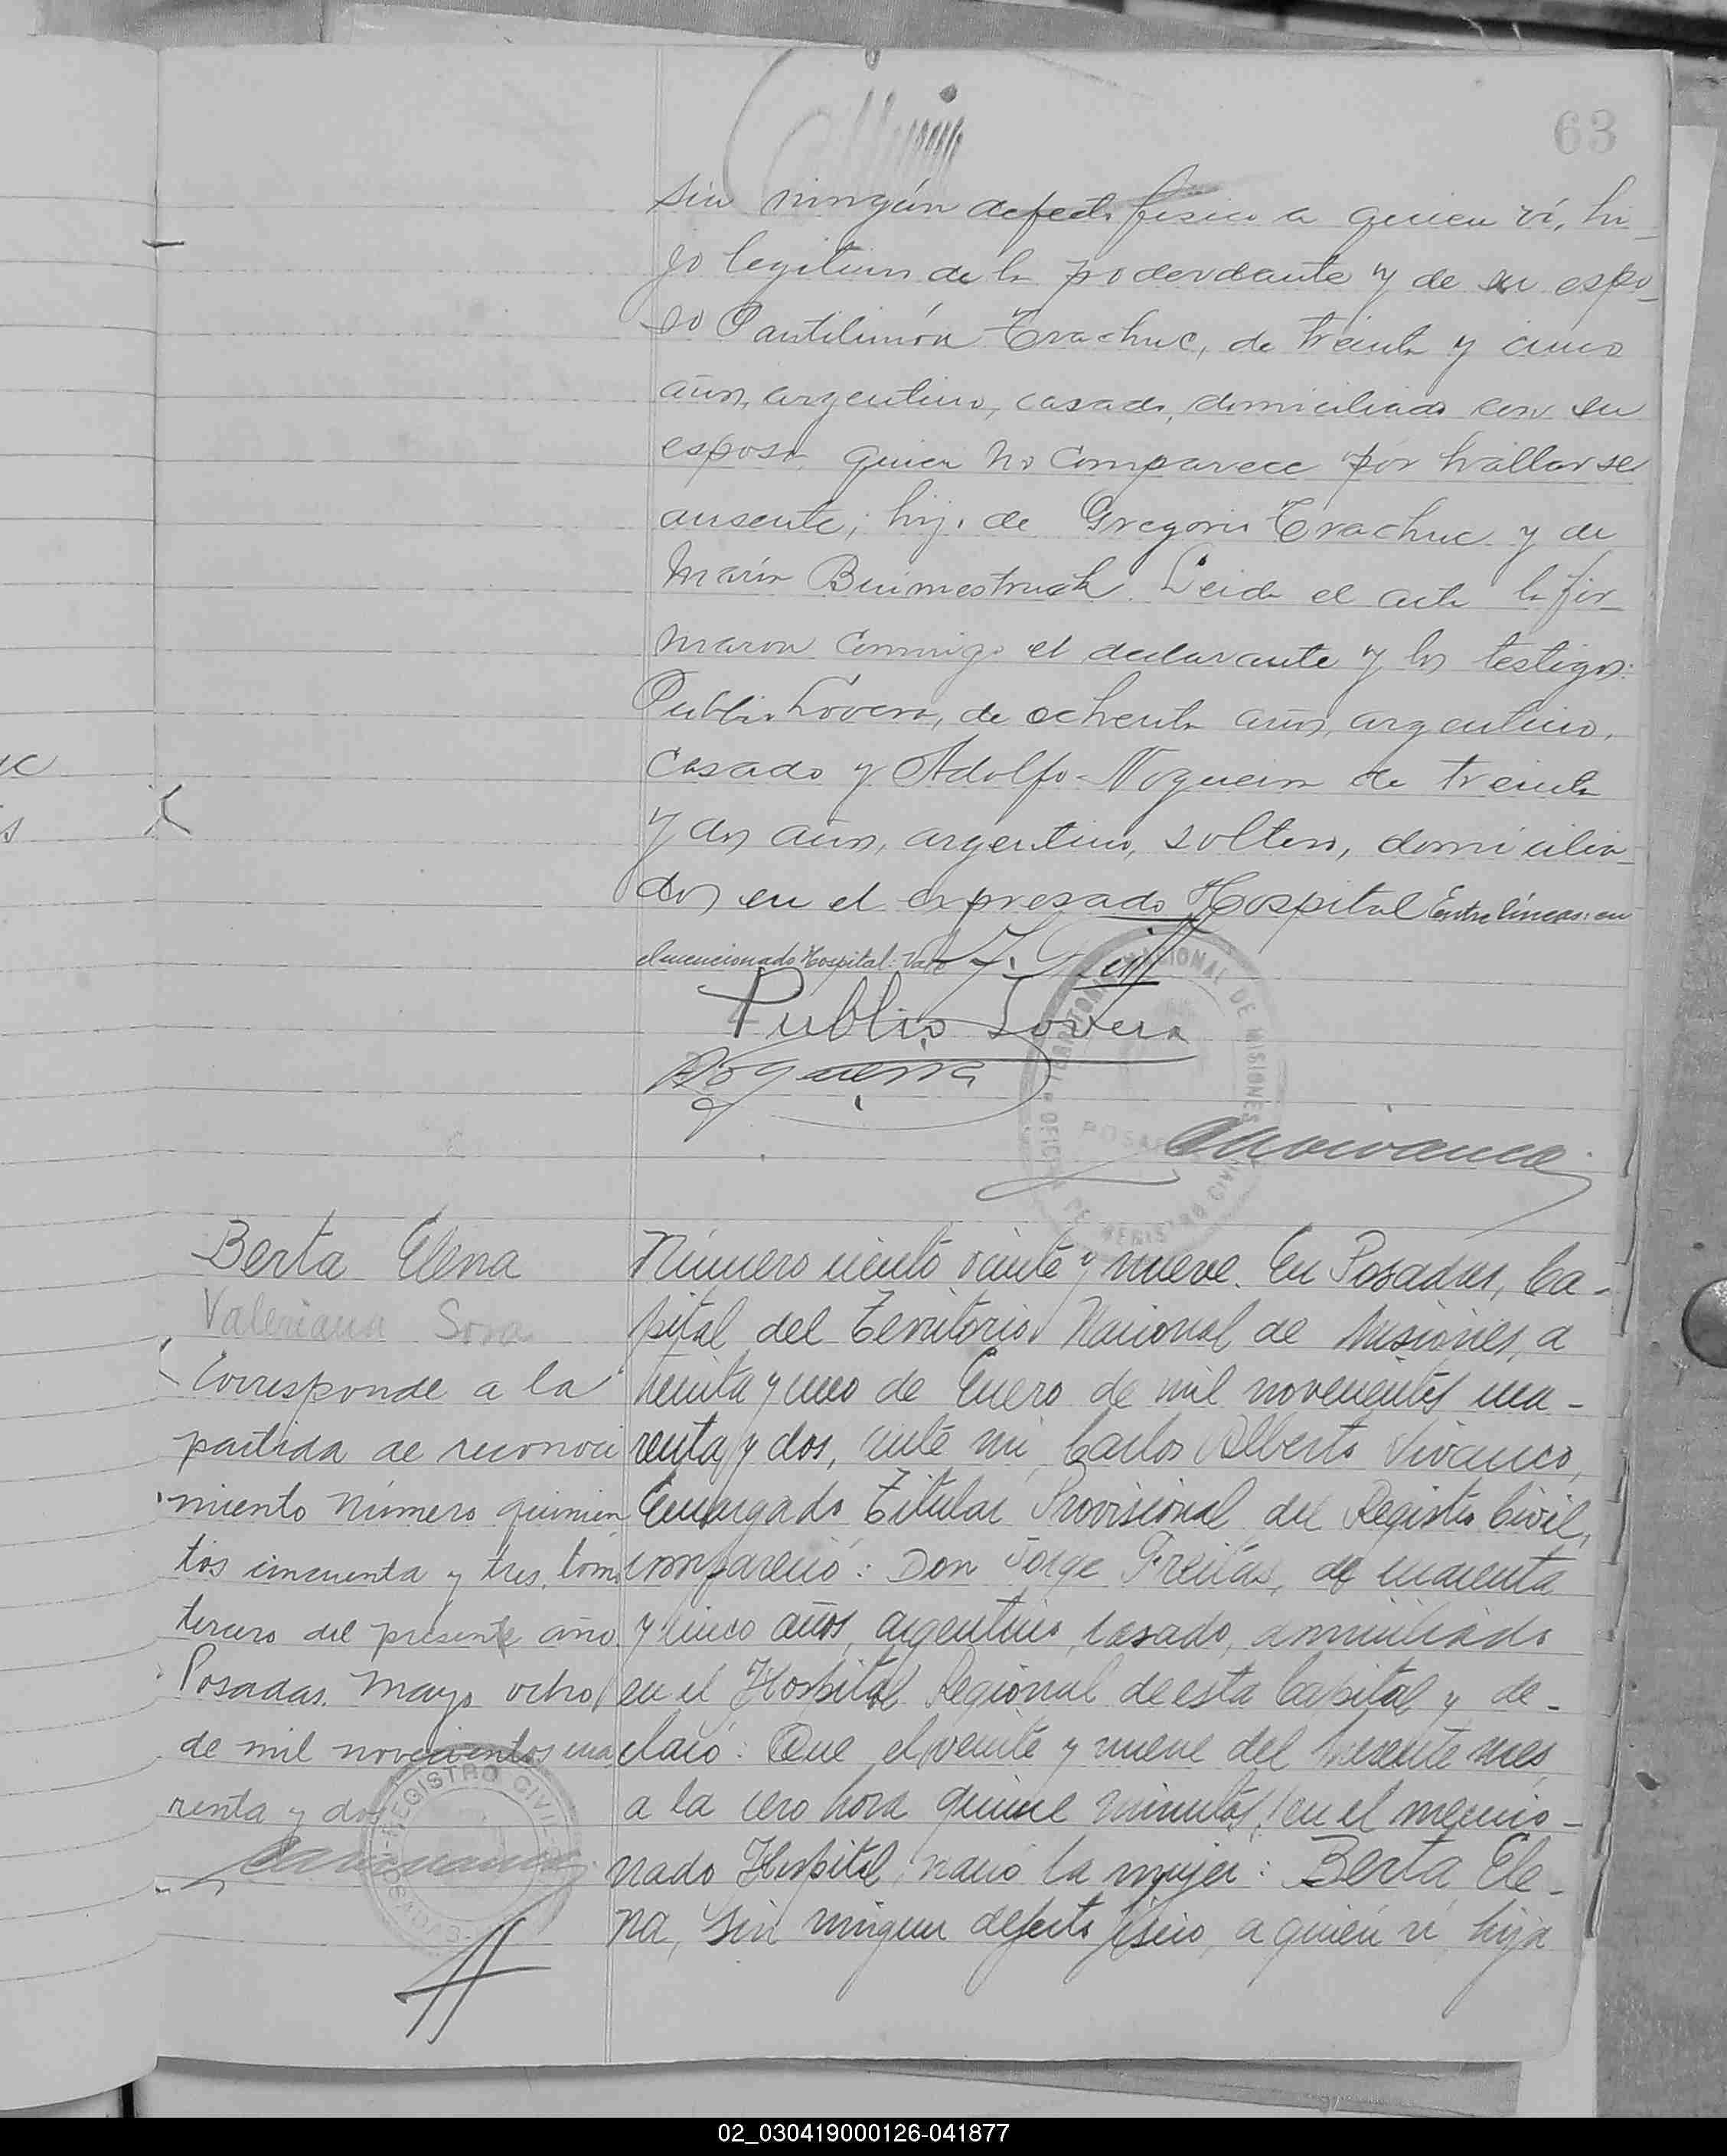 63
sin ningún defecto físico a quien ví, hi-
jo legitimo de la poderdante y de su espo-
so Pantilimón Trachuc, de treinta y cinco
años, argentino, casado, domiciliado con su
esposa quien no comparece por hallarse
ausente; hijo de Gregorio Trachuc y de
María Buimestruck. Leida el acta la fir-
maron conmigo el declarante y los testigos:
Publio Lovera, de ochenta años, argentino,
casado y Adolfo Nogueira de treinta
y dos años, argentino, soltero, domicilia-
dos en el expresado Hospital Entre líneas: en
el mencionado Hospital: Vale
Publio Lovera
ANogueira
CAVivanco
Berta Elena
Valeriana Sosa
Corresponde a la
partida de reconoci
miento número quinien
tos cincuenta y tres, tomo
tercero del presente año.
Posadas. Mayo ocho
de mil novecientos cua
renta y dos
Número ciento veinte y nueve. En Posadas, Ca-
pital del Territorio Nacional de Misiones, a
treinta y uno de Enero de mil novecientos cua-
renta y dos, ante mi, Carlos Alberto Vivanco,
Encargado Titular Provisional del Registro Civil,
compareció: Don Jorge Freitas, de cuarenta
y cinco años, argentino, casado, domiciliado
en el Hospital Regional de esta Capital y de-
claró: Que el veinte y nueve del presente mes,
a la cero hora quince minutos, en el mencio-
nado Hospital, nació la mujer: Berta Ele-
na, sin ningun defecto físico, a quién ví, hija
REGISTRO CIVIL
POSADAS
NACIONAL DE MISIONES
OFICINA DE REGISTRO CIVIL
02_030419000126-041877